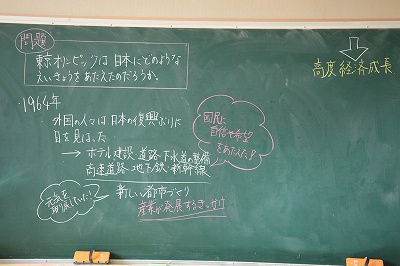 問題
東京オリンピックは日本にどのような
えいきょうをあたえたのだろうか。
1964年
外国の人々は日本の復興ぶりに
目を見はった
→ホテル建設 道路 下水道の整備
高速道路・地下鉄・新幹線
国民に
自信や希望
をあたえた!?
元気を
取り戻していた!?
新しい都市づくり
産業が発展するきっかけ
高度経済成長